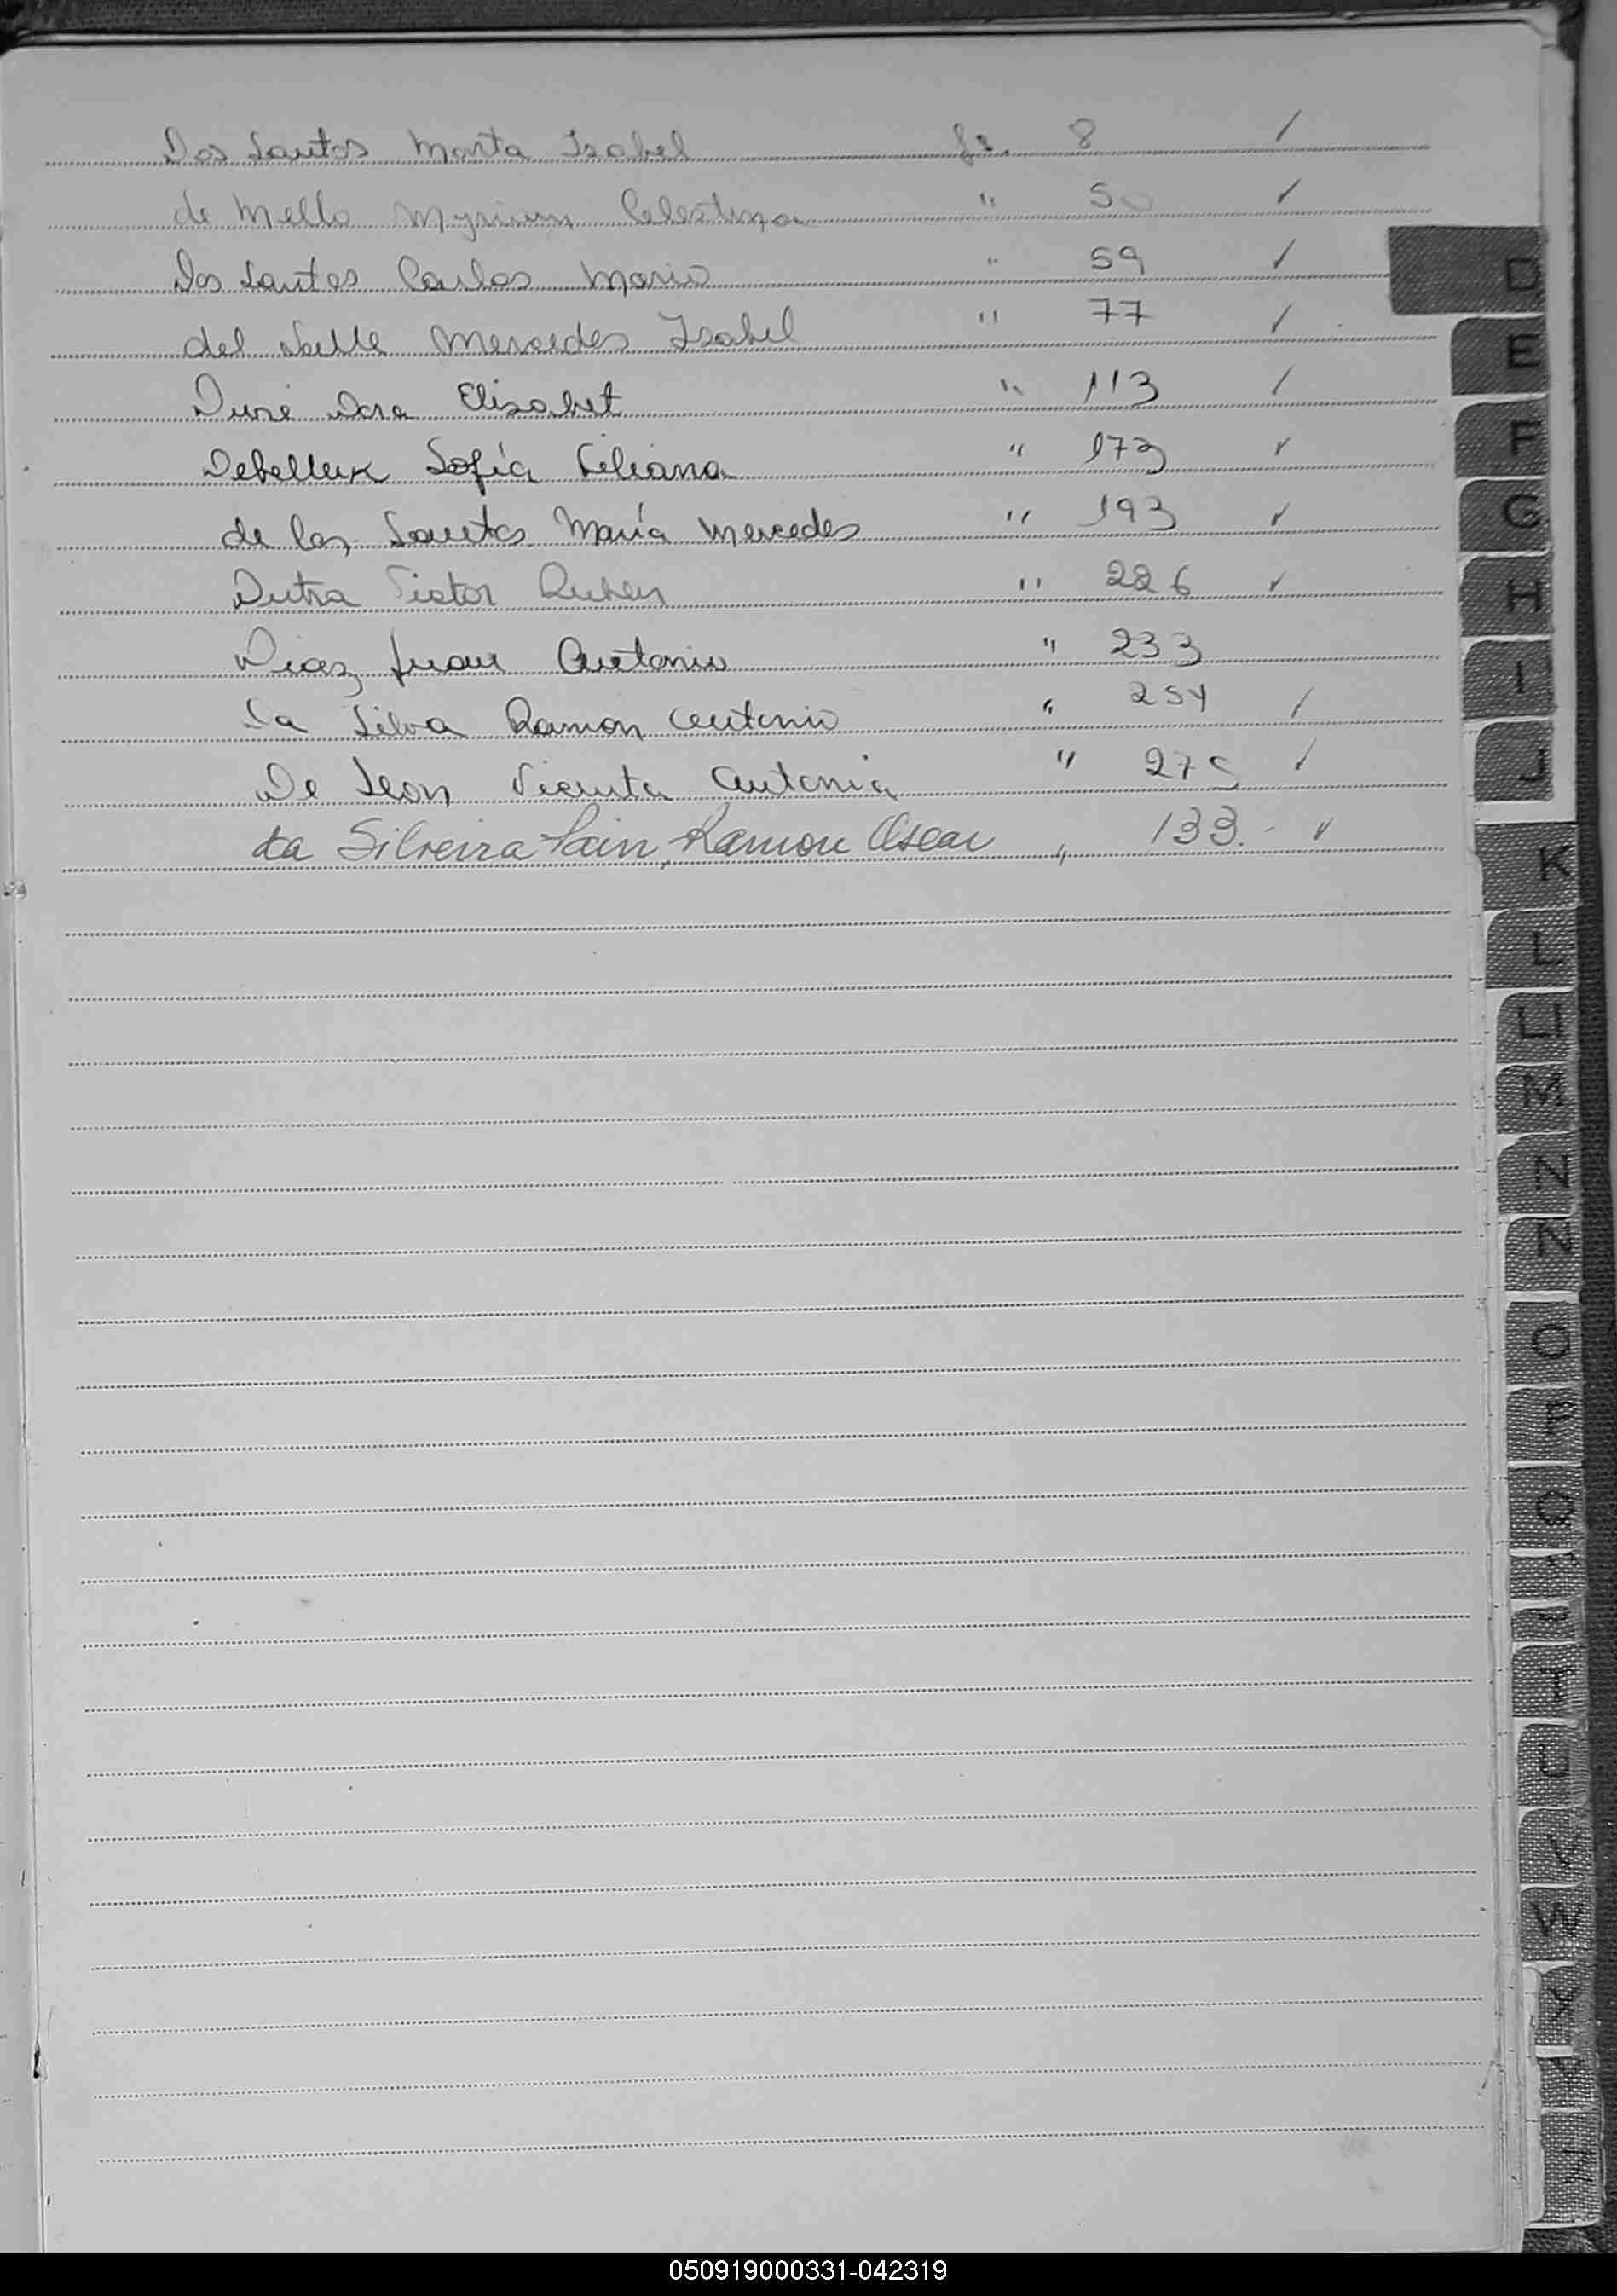 Dos Santos Marta Isabel fs. 8 /
de Mello Myrian Celestina " 50 ✓
Dos Santos Carlos Mario " 59 ✓
del Valle Mercedes Isabel " 77 ✓
Duré Dora Elisabet " 113 /
Debellux Sofía Liliana " 173 ✓
de los Santos María Mercedes " 193 ✓
Dutra Victor Ruben " 226 ✓
Diaz Juan Antonio " 233
Da Silva Ramon Antonio " 254 /
De Leon Vicenta Antonia " 275 ✓
da Silveira Ramon Oscar " 133.- ✓
D
E
F
G
H
I
J
K
L
LL
M
N
Ñ
O
P
Q
T
U
V
W
X
Y
Z
050919000331-042319